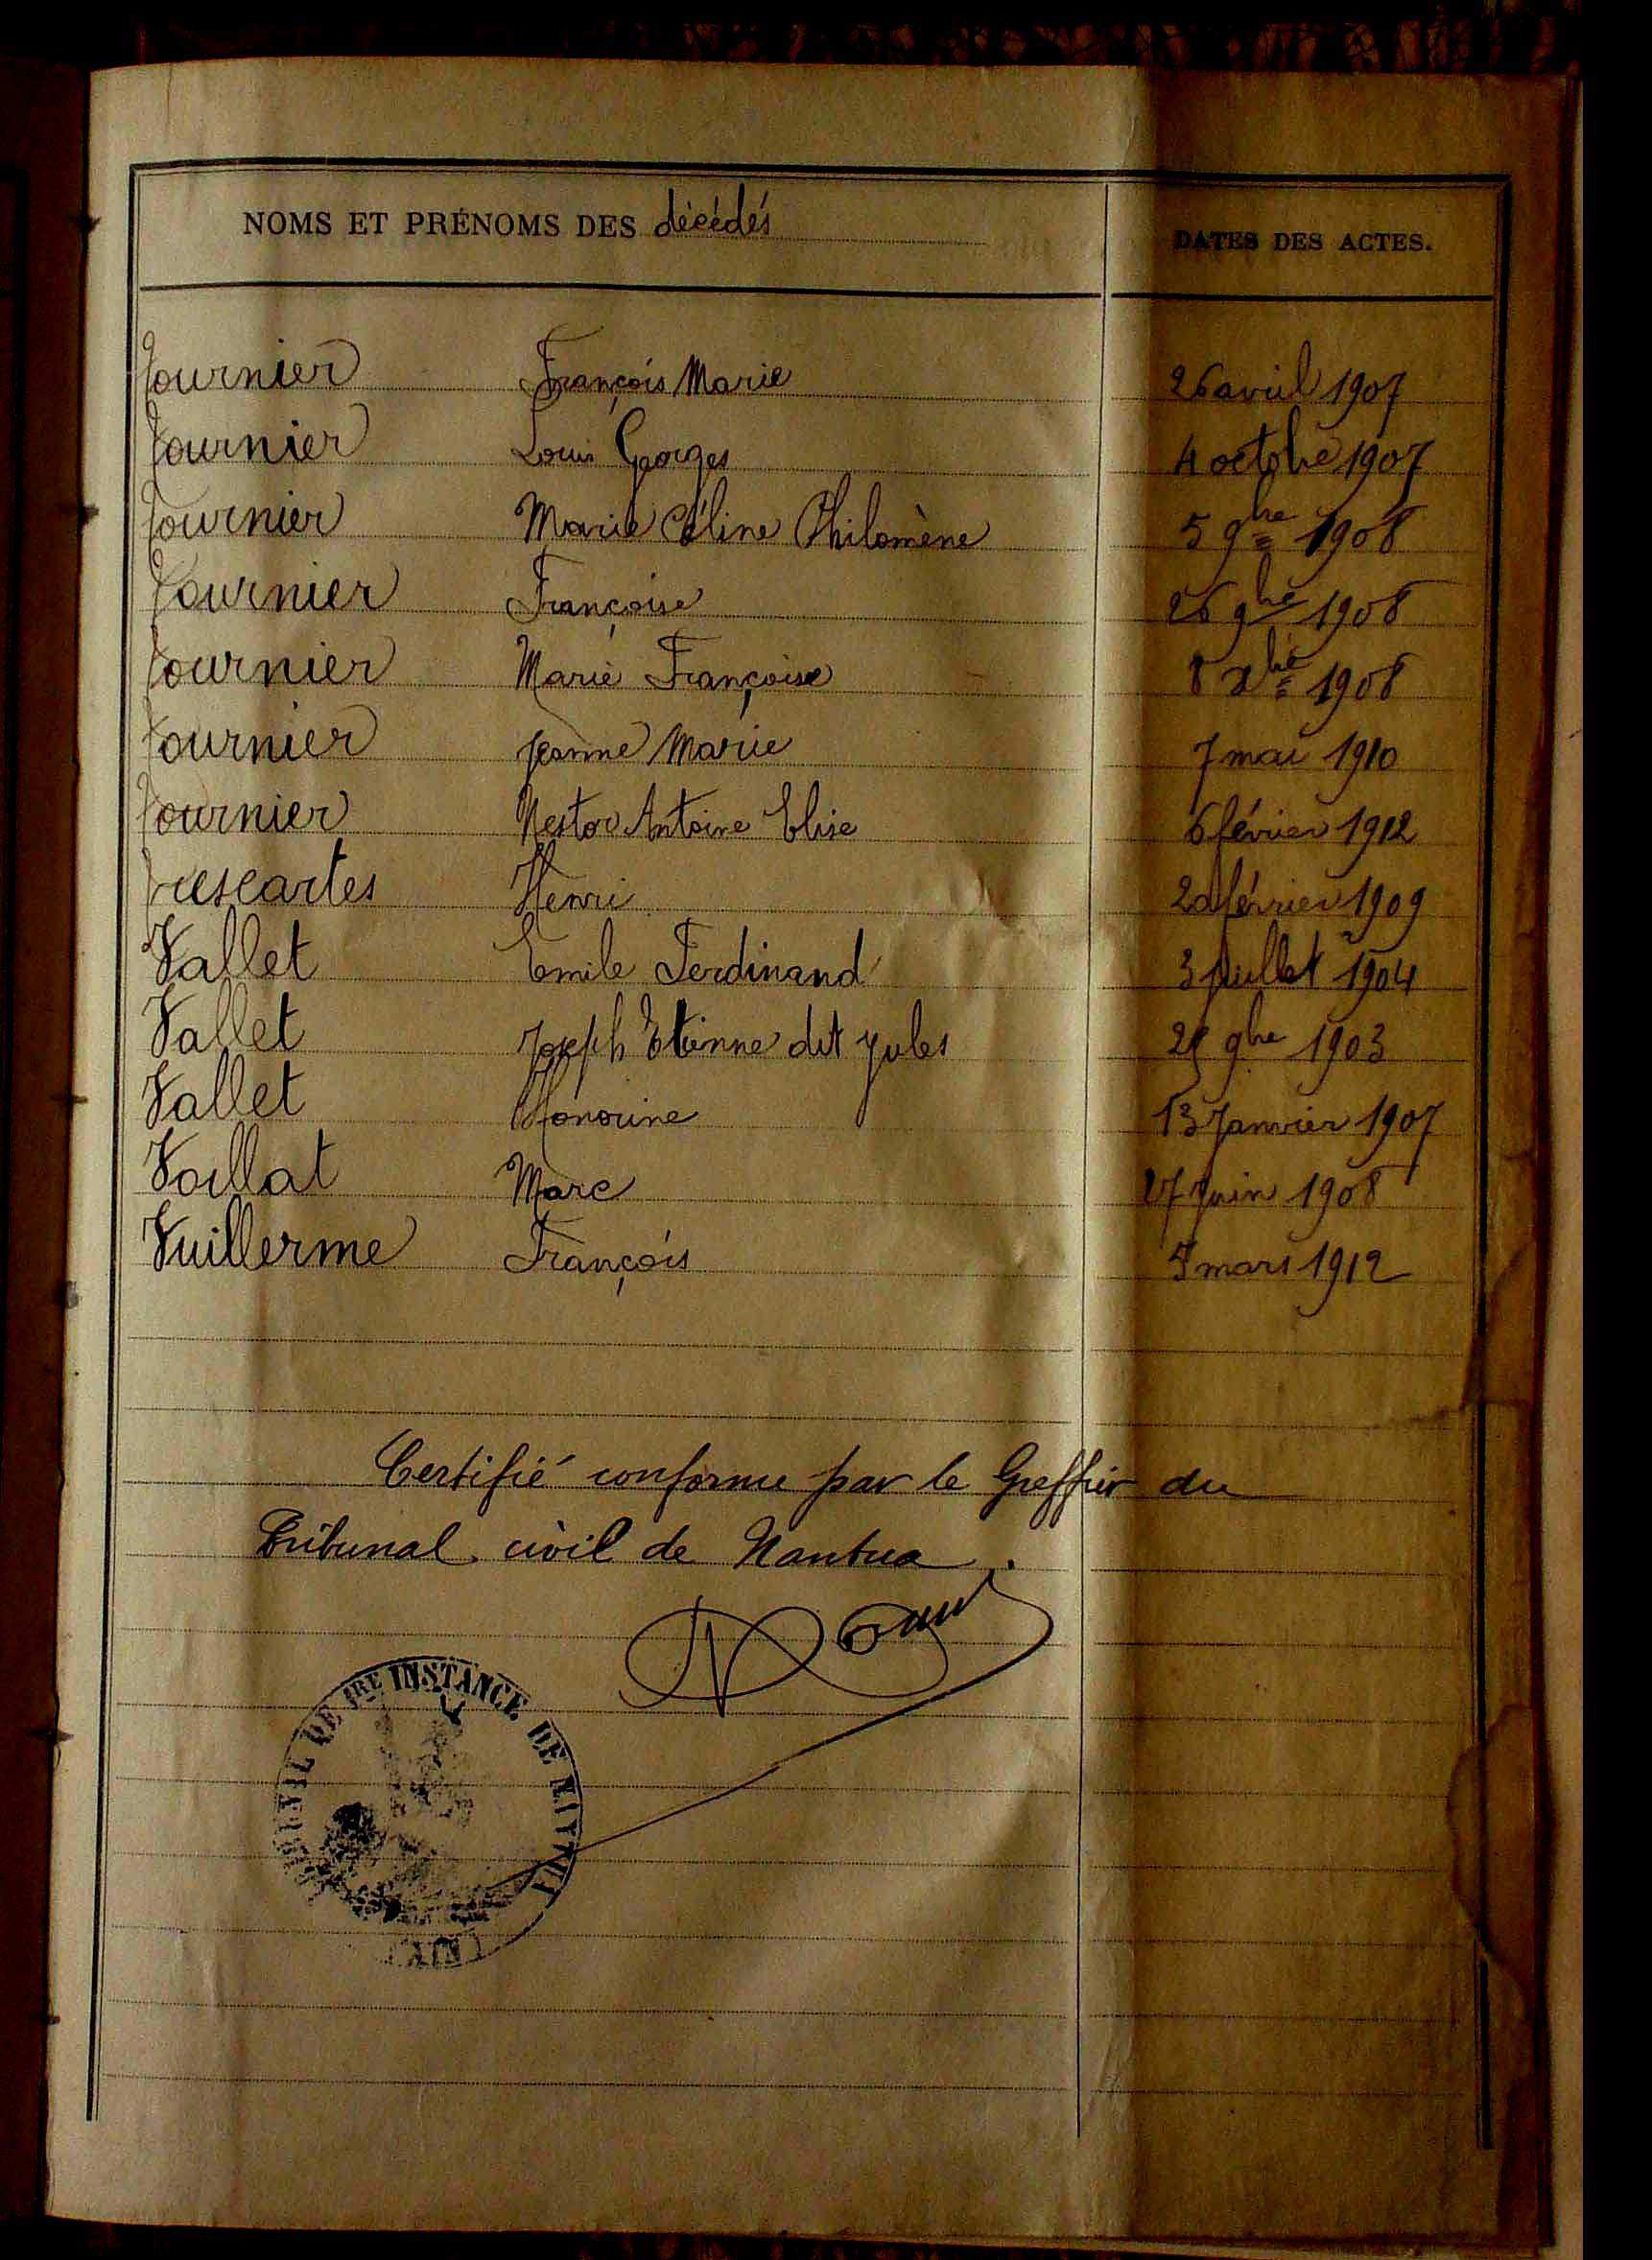 NOMS ET PRÉNOMS DES décédés DATES DES ACTES.
Tournier François Marie 26 avril 1907
Tournier Louis Georges 4 octobre 1907
Tournier Marie Céline Philomène 5 9bre 1908
Tournier Françoise 26 9bre 1908
Tournier Marie Françoise 8 Xbre 1908
Tournier Jeanne Marie 7 mai 1910
Tournier Nestor Antoine Elise 6 février 1912
Trescartes Henri février 1909
Vallet Emile Ferdinand 3 juillet 1904
Vallet Joseph Etienne dit Jules 9bre 1903
Vallet Honorine 13 Janvier 1907
Vaillat Marc 27 Juin 1908
Vuillerme François mars 1912
Certifié conforme par le Greffier du
Tribunal civil de Nantua.
TRIBUNAL DE 1RE INSTANCE DE NANTUA
(AIN)